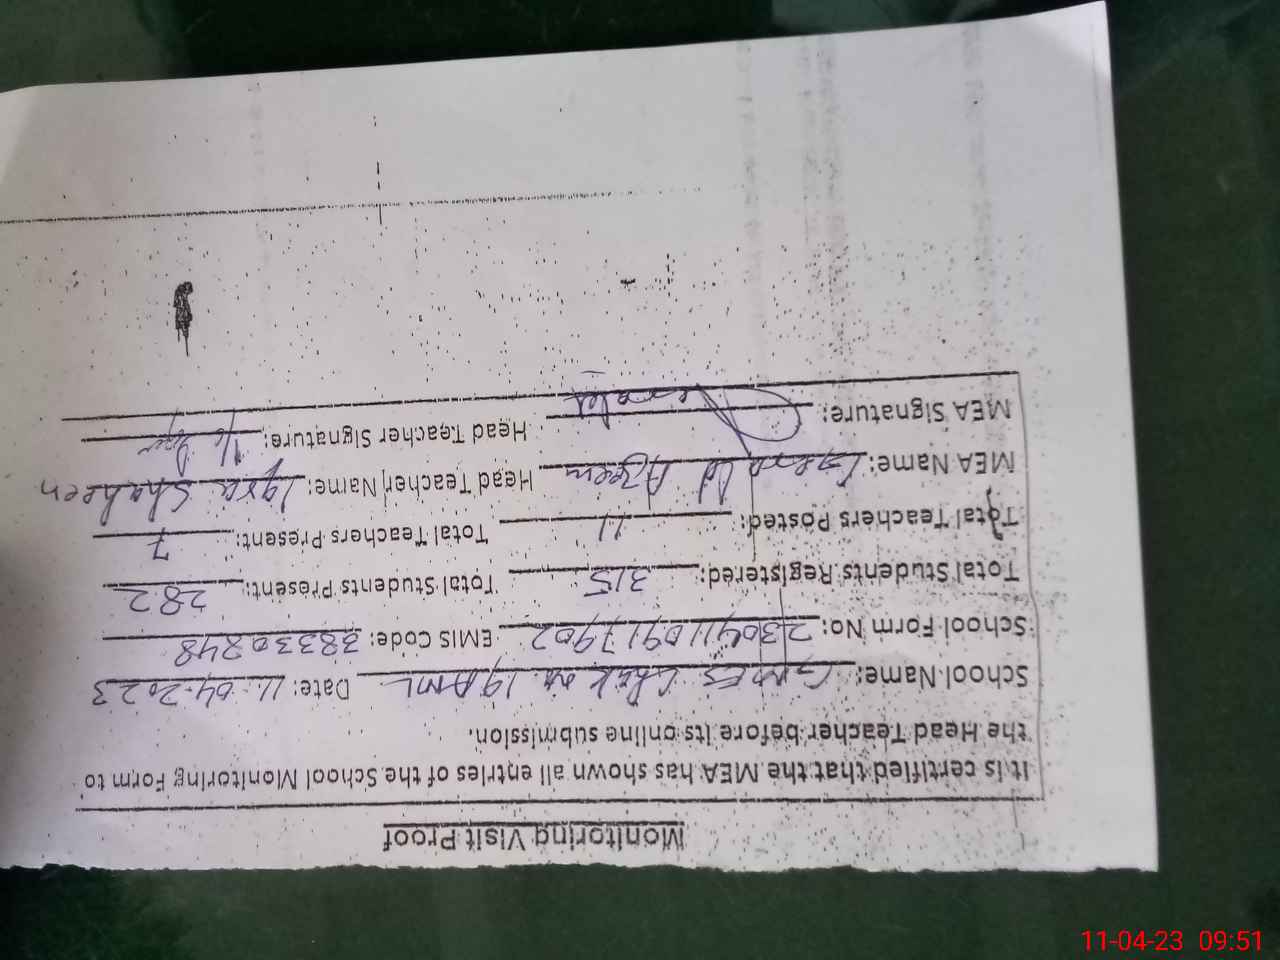 Monitoring Visit Proof
It is certified that the MEA has shown all entries of the School Monitoring Form to
the Head Teacher before its online submission.
School Name: GMPES Chak no 19 AML Date: 11.04.2023
School Form No: 230411109117902 EMIS Code: 38330248
Total Students Registered: 315 Total Students Present: 282
Total Teachers Posted: 11 Total Teachers Present: 7
MEA Name: Head Teacher Name: Iqra Shaheen
MEA Signature: Head Teacher Signature:
11-04-23 09:51